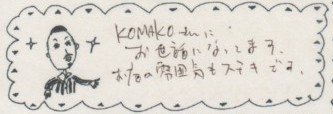 KOMAKOさんに
お世話になってます。
お店の雰囲気もステキです。